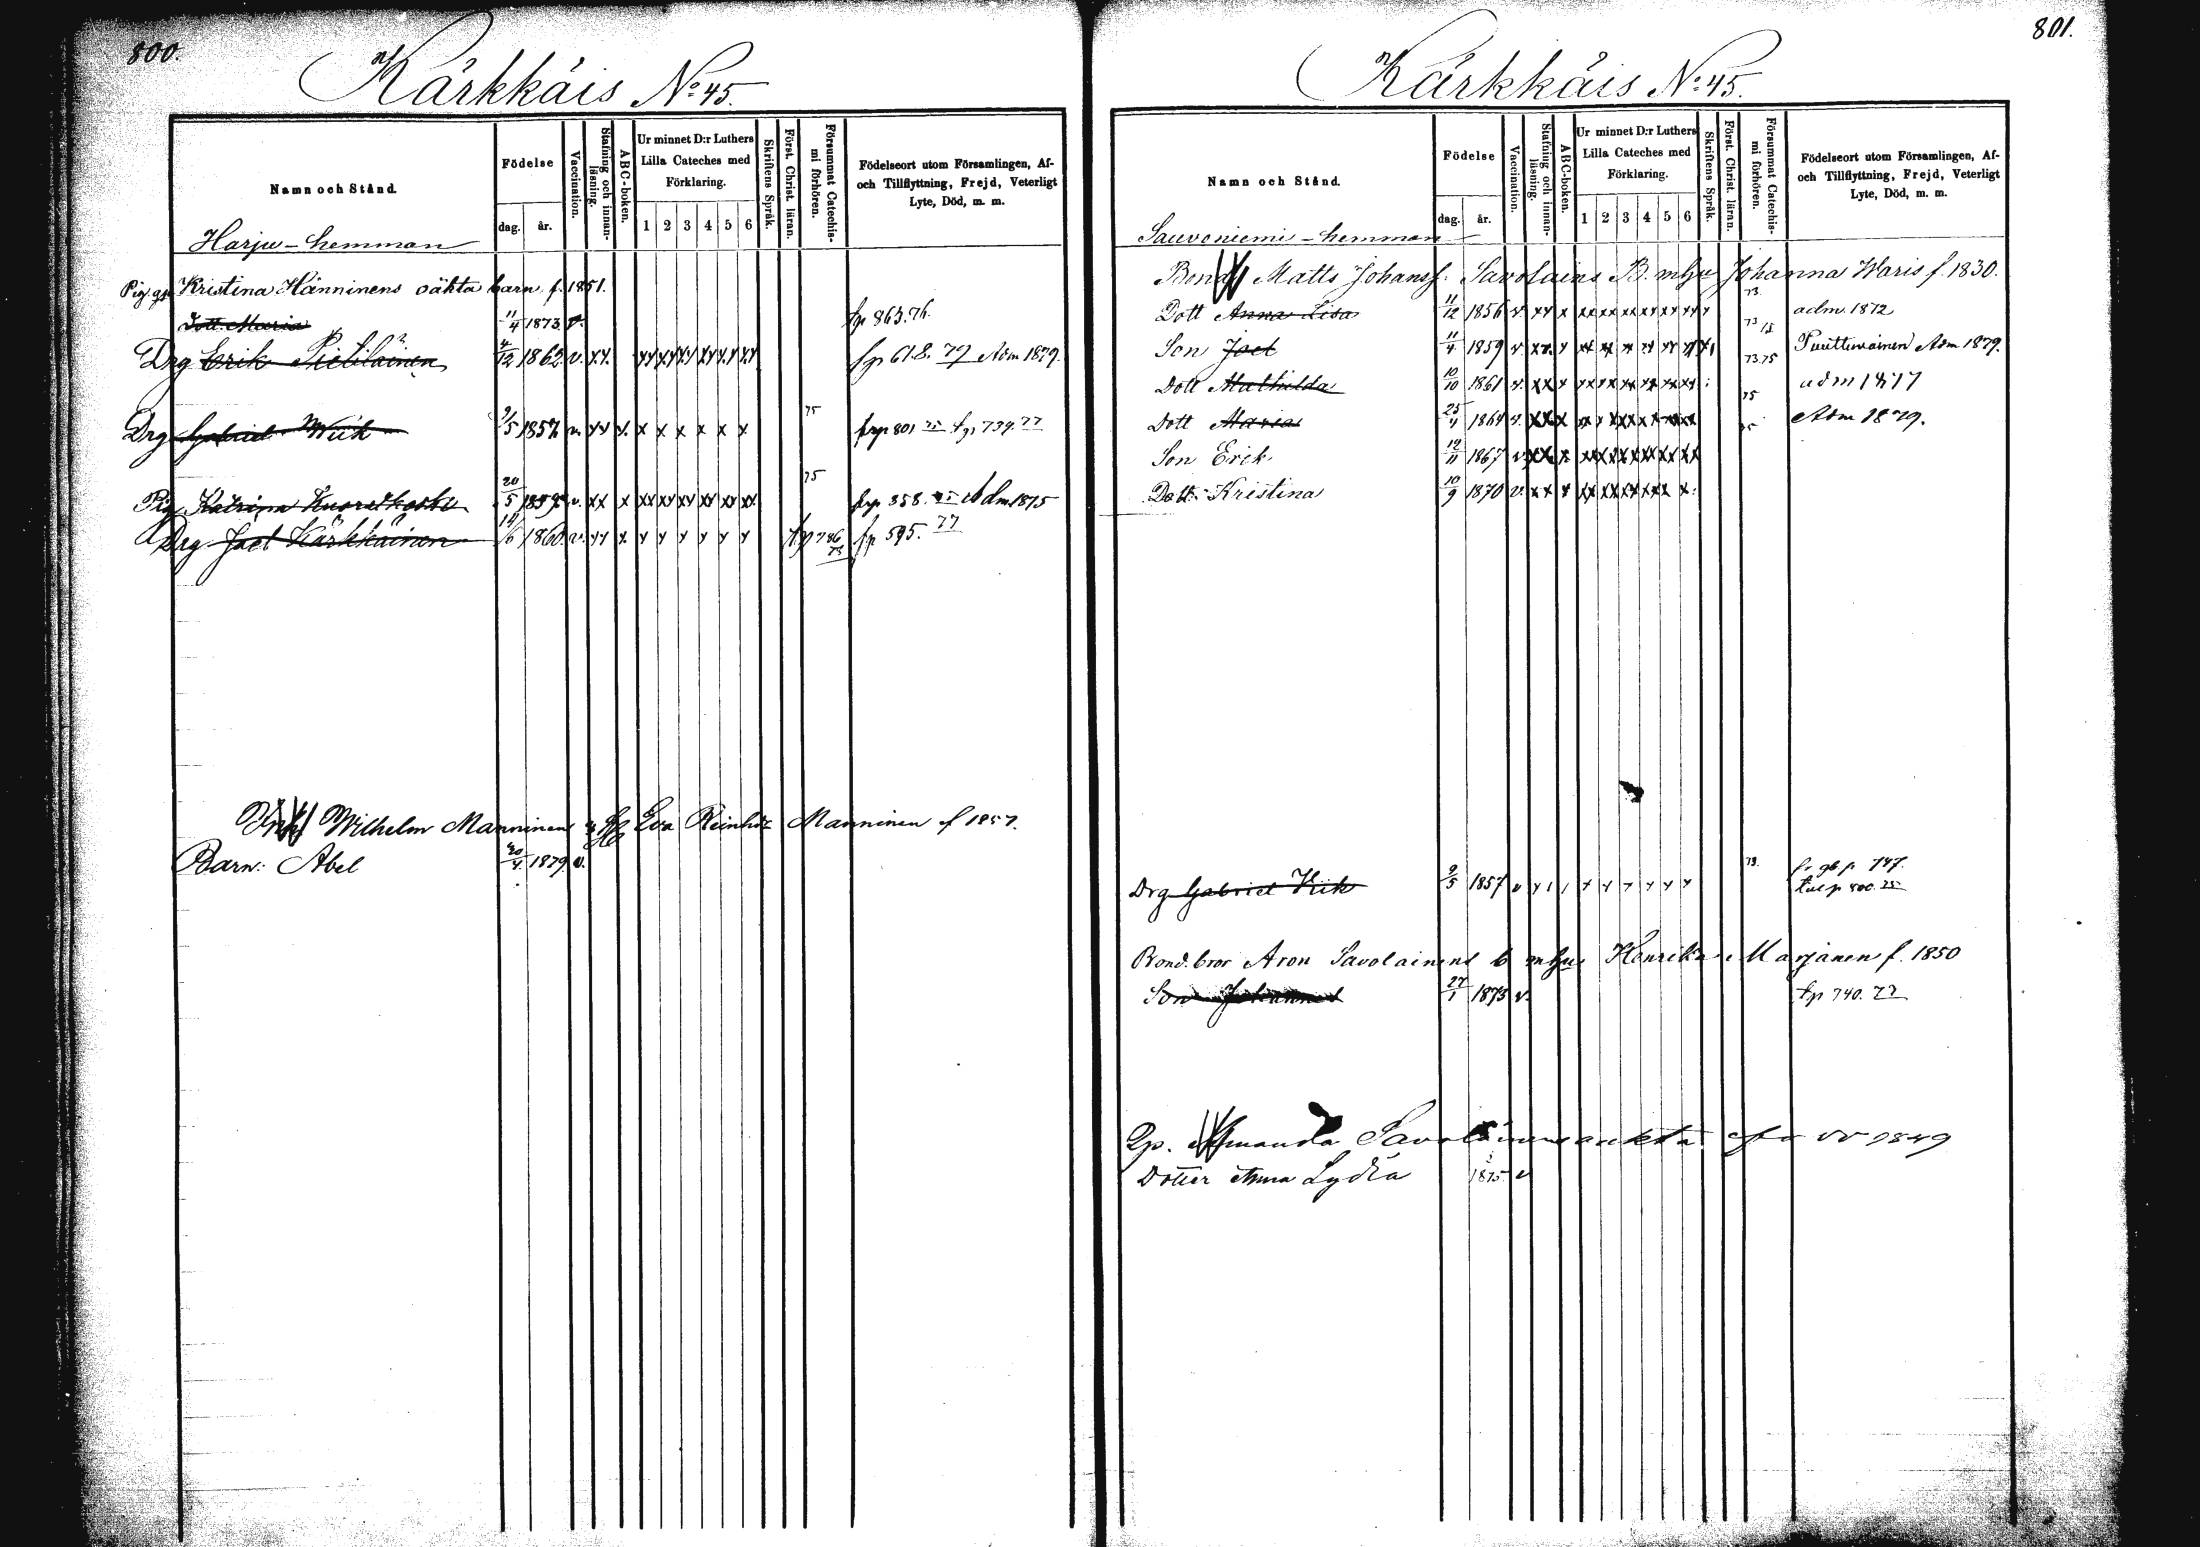 800.
Kärkkäis No 45.
Namn och Stånd.
Födelse
dag.
år.
Vaccination.
Stafning och innan-
läsning.
ABC-boken.
Ur minnet D:r Luthers
Lilla Cateches med
Förklaring.
1 2 3 4 5 6
Skriftens Språk.
Först. Christ. läran.
Försummat Catechis-
mi förhören.
Födelseort utom Församlingen, Af-
och Tillflyttning, Frejd, Veterligt
Lyte, Död, m. m.
Harju-hemman
Pig. Kristina Hänninens oäkta barn f. 1851.
Dott. Maria 11/4 1873 v. fp 863.76.
Drg Erik Pietiläinen 4/12 1862 v. xx. xx xx xx xx xx xx fp 618. 79 Adm 1879.
Drg Gabriel Wiik 9/5 1857 v. xx x. x x x x x x 75 frp 801 75 tp 739. 77
Pig Katrina 20/5 1859 v. xx x xx xx xx xx xx xx 75 frp 358. 75 Adm 1875
Drg Joel Kärkkäinen 14/6 1860. v. xx x. x x x x x x fp 786 fp 595. 77
Wilhelm Manninen Eva Manninen f 1857.
Barn: Abel 20/4 1879. v.
801.
Kärkkäis No 45.
Namn och Stånd.
Födelse
dag.
år.
Vaccination.
Stafning och innan-
läsning.
ABC-boken.
Ur minnet D:r Luthers
Lilla Cateches med
Förklaring.
1 2 3 4 5 6
Skriftens Språk.
Först. Christ. läran.
Försummat Catechis-
mi förhören.
Födelseort utom Församlingen, Af-
och Tillflyttning, Frejd, Veterligt
Lyte, Död, m. m.
Sauvoniemi-hemman
Bond Matts Johanss. Savolains B. m hu Johanna Waris f. 1830.
Dott Anna Lisa 11/12 1856 v. xx x xx xx xx xx xx xx x 73. adm. 1872
Son Joel 11/4 1859 v. xx. x xx xx xx xx xx xx 73 75 Adm 1879.
Dott Mathilda 10/10 1861 v. xx x xx xx xx xx xx xx 73.75 adm 1877
Dott Maria 25/4 1864 v. xx x xx xx xx xx xx xx 75 Adm 1879.
Son Erik 19/11 1867 v. xx x. xx xx xx xx xx xx 75
Dott. Kristina 10/9 1870 v. xx x xx xx xx xx xx x.
Drg Gabriel Wiik 9/5 1857 v x x x x x x x 73. fr gb p 747.
tul p 800. 75
Bond. bror Aron Savolainens b m hu Henrika Marjanen f. 1850
Son Johannes 27/1 1873 v. tp 740. 77
Amanda 1849
Dotter Anna Lydia 1875. v